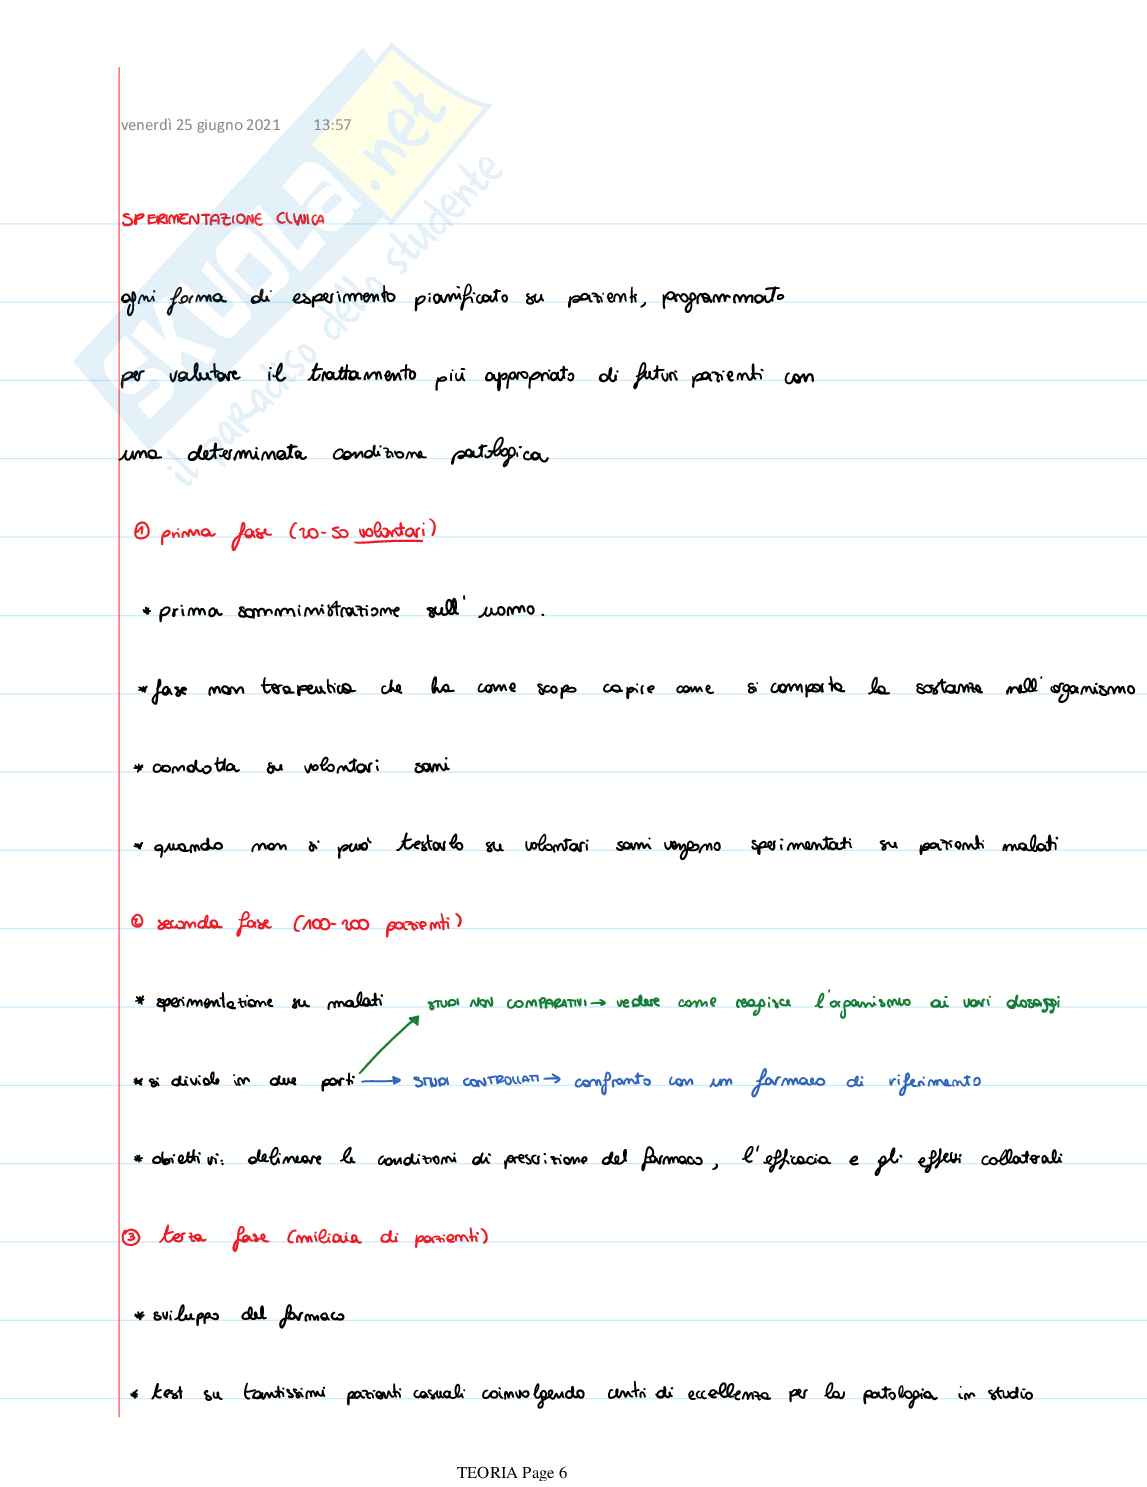 venerdì 25 giugno 2021 13:57
SPERIMENTAZIONE CLINICA
ogni forma di esperimento pianificato su pazienti, programmato
per valutare il trattamento più appropriato di futuri pazienti con
una determinata condizione patologica
① prima fase (20-50 volontari)
* prima somministrazione sull' uomo.
* fase non terapeutica che ha come scopo capire come si comporta la sostanza nell'organismo
* condotta su volontari sani
* quando non si può testarlo su volontari sani vengono sperimentati su pazienti malati
② seconda fase (100-200 pazienti)
* sperimentazione su malati STUDI NON COMPARATIVI → vedere come reagisce l'organismo ai vari dosaggi
* si divide in due parti → STUDI CONTROLLATI → confronto con un farmaco di riferimento
* obiettivi: delineare le condizioni di prescrizione del farmaco, l'efficacia e gli effetti collaterali
③ terza fase (migliaia di pazienti)
* sviluppo del farmaco
* test su tantissimi pazienti casuali coinvolgendo centri di eccellenza per la patologia in studio
TEORIA Page 6
SKUOLA.net
il paradiso dello studente